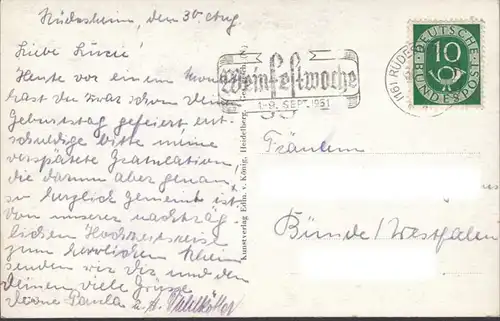 Rüdesheim, den 30. Aug.
Liebe Lucie!
Heute vor einem Monat
hast du zwar schon dein
Geburtstag gefeiert ent-
schuldige bitte meine
verspätete Gratulation,
die darum aber genau
so herzlich gemeint ist.
Von unserer nachträg-
lichen Hochzeitsreise
zum herrlichen Rhein
senden wir dir und den
Deinen viele Grüsse
Deine Paula u.
Kunstverlag Edm. v. König, Heidelberg
Weinfestwoche
1.-9. SEPT. 1951
(16) RÜDES
DEUTSCHE
BUNDESPOST
10
Fräulein
Bünde/Westfalen